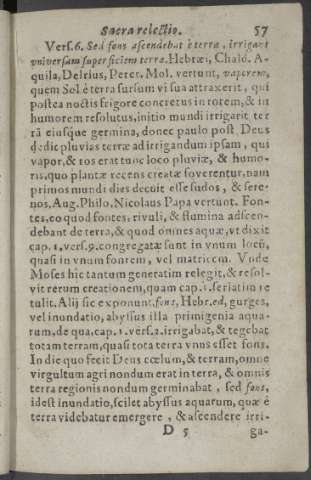 Sacra relectio. 57
Vers.6. Sed fons ascendebat è terra, irrigans
vniversam superficiem terra. Hebræi, Chald. A-
quila, Delrius, Perer. Mol. vertunt, vaporem,
quem Sol è terra sursum vi sua attraxerit, qui
postea noctis frigore concretus in rorem, & in
humorem resolutus, initio mundi irrigarit ter
rā eiusque germina, donec paulo post Deus
dedit pluvias terræ ad irrigandum ipsam, qui
vapor, & ros erat tunc loco pluviæ, & humo-
ris, quo plantæ recens creatæ foverentur, nam
primos mundi dies decuit esse sudos, & sere-
nos, Aug. Philo. Nicolaus Papa vertunt. Fon-
tes, eo quod fontes, rivuli, & flumina adscen-
debant de terra, & quod omnes aquæ, vt dixit
cap. 1. vers. 9. congregatæ sunt in vnum locū,
quasi in vnum fontem, vel matricem. Vnde
Moses hic tantum generatim relegit, & resol-
vit rerum creationem, quam cap. 1. seriatim re
tulit. Alij sic exponunt, fons, Hebr. ed, gurges,
vel inundatio, abyssus illa primigenia aqua-
rum, de qua, cap. 1. vers. 2. irrigabat, & tegebat
totam terram, quasi tota terra vnus esset fons.
In die quo fecit Deus cœlum, & terram, omne
virgultum agri nondum erat in terra, & omnis
terra regionis nondum germinabat, sed fons,
idest inundatio, scilet abyssus aquarum, quæ è
terra videbatur emergere, & ascendere irri-
D 5 ga-